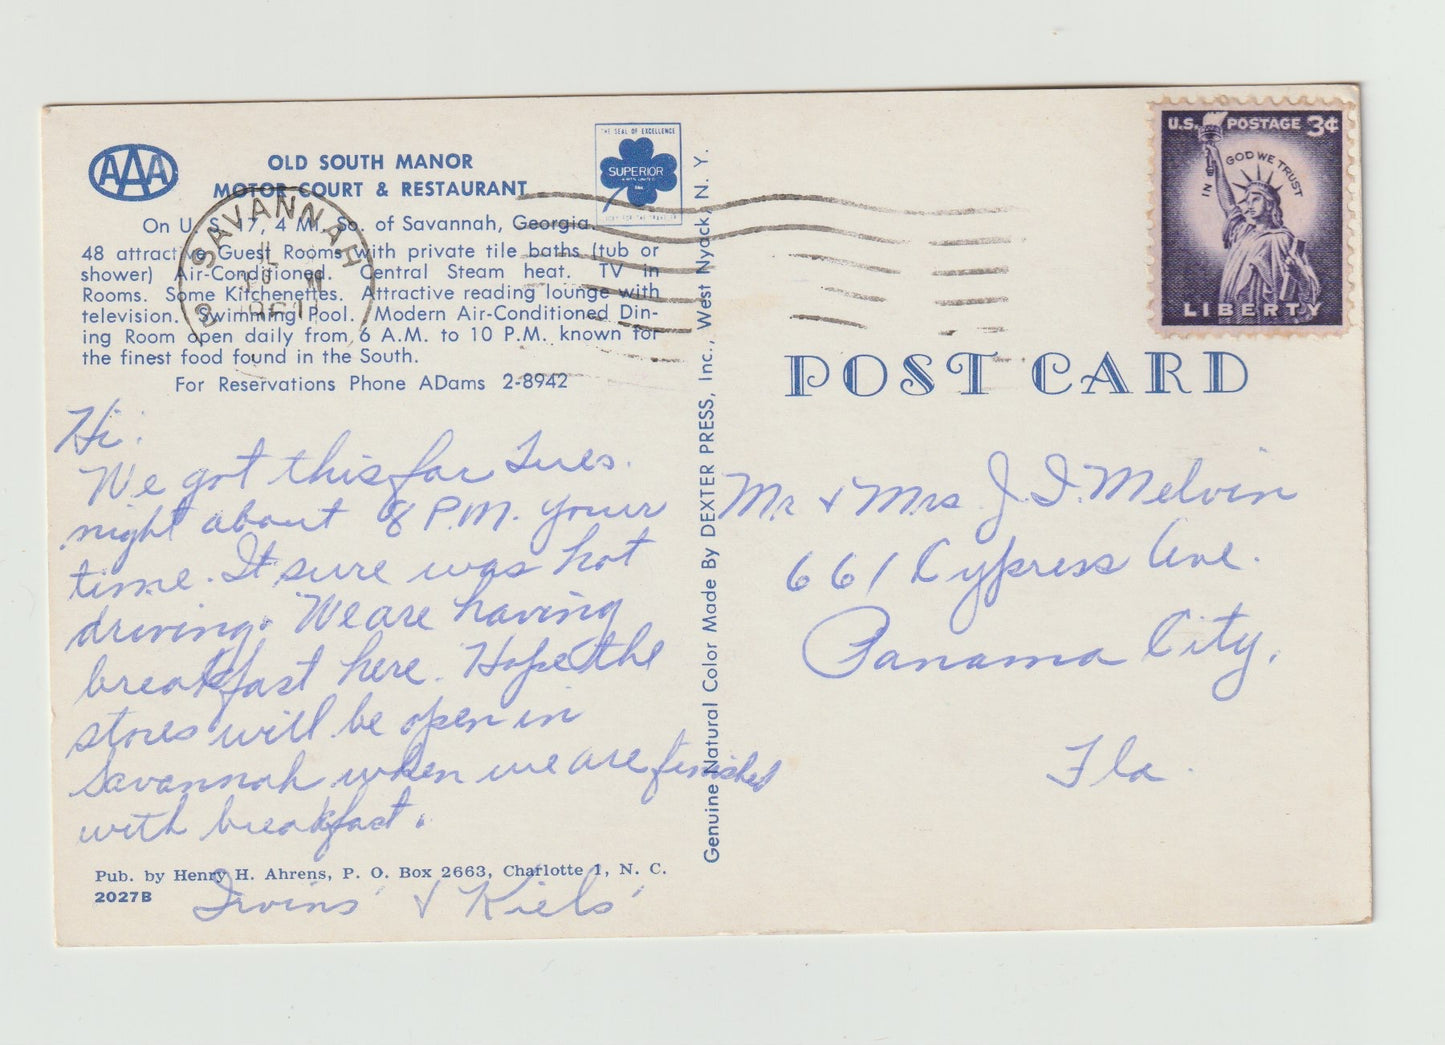 AAA
OLD SOUTH MANOR
MOTOR COURT & RESTAURANT
THE SEAL OF EXCELLENCE
SUPERIOR
On U. S. 17, 4 Mi. So. of Savannah, Georgia.
48 attractive Guest Rooms with private tile baths (tub or
shower) Air-Conditioned. Central Steam heat. TV in
Rooms. Some Kitchenettes. Attractive reading lounge with
television. Swimming Pool. Modern Air-Conditioned Din-
ing Room open daily from 6 A.M. to 10 P.M. known for
the finest food found in the South.
For Reservations Phone ADams 2-8942
SAVANNAH
Hi.
We got this far Tues.
night about 8 P.M. your
time. It sure was hot
driving. We are having
breakfast here. Hope the
stores will be open in
Savannah when we are finished
with breakfast.
Pub. by Henry H. Ahrens, P. O. Box 2663, Charlotte 1, N. C.
2027B
Irvins' & Kiels'
Genuine Natural Color Made By DEXTER PRESS, Inc., West Nyack, N. Y.
U.S. POSTAGE 3¢
IN GOD WE TRUST
LIBERTY
POST CARD
Mr. & Mrs. J. I. Melvin
661 Cypress Ave.
Panama City,
Fla.